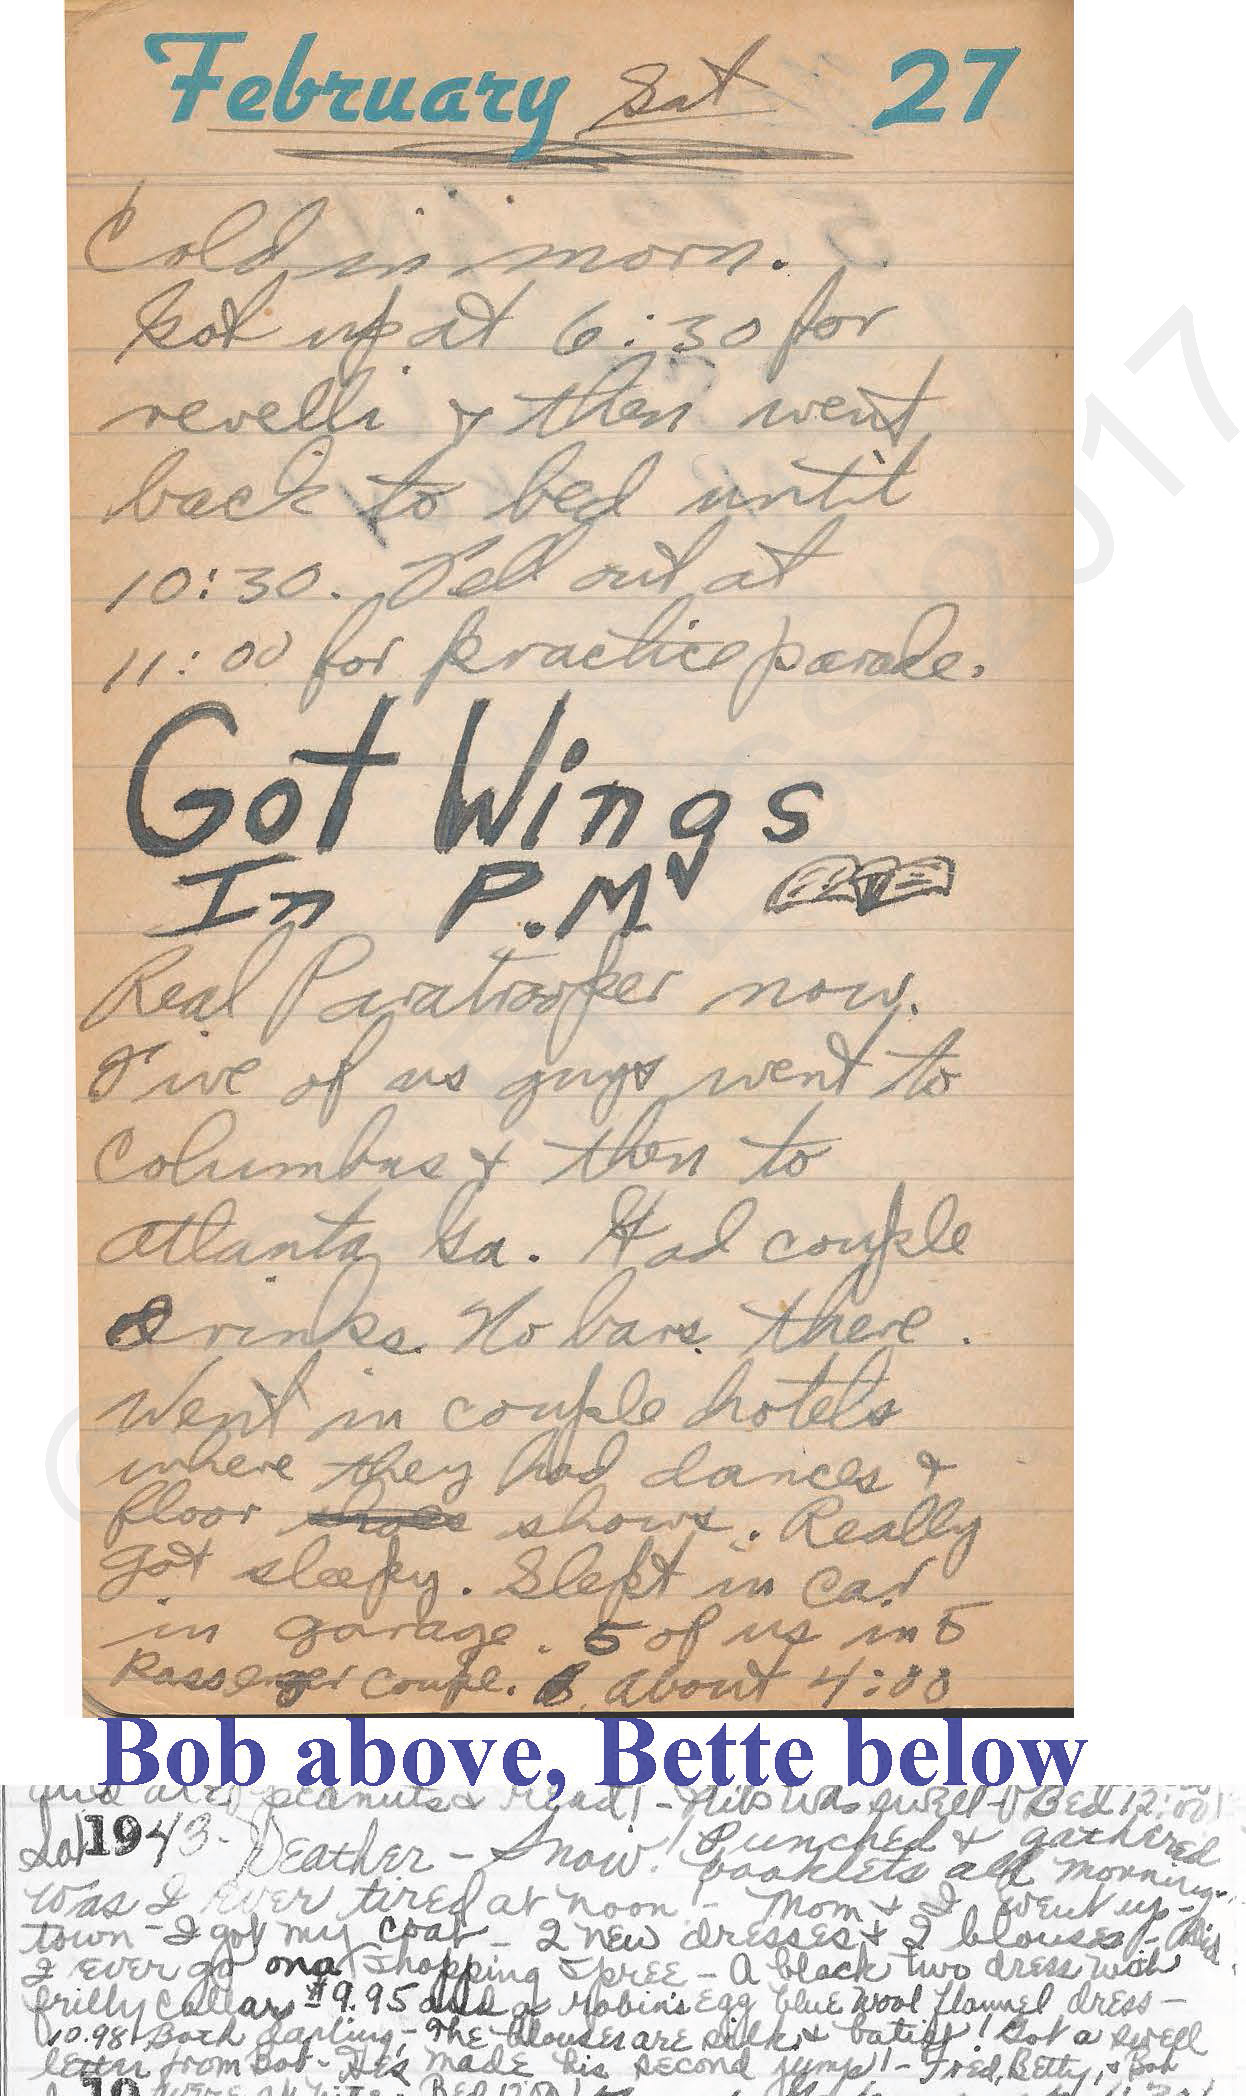 February Sat 27
Cold in morn.
Got up at 6:30 for
revelli & then went
back to bed until
10:30. Fell out at
11:00 for practice parade.
Got Wings
In P.M
Real Paratrooper now.
Five of us guys went to
Columbus & then to
Atlanta Ga. Had couple
drinks. No bars there.
Went in couple hotels
where they had dances &
floor shows. Really
got sleepy. Slept in car
in garage. 5 of us in 5
Passenger coupe. about 4:00
Bob above, Bette below
and ate peanuts & read! - was swell - Bed 12:00!
Sat 1943 - Weather - Snow! Punched & gathered
booklets all morning -
Was I ever tired at noon! - Mom & I went up-
town - I got my coat - 2 new dresses & 2 blouses! - Did
I ever go on a shopping spree - A black two dress with
frilly collar - $9.95 and a robin's egg blue wool flannel dress -
10.98. Both darling - The blouses are silk & batist! Got a swell
letter from Bob - He's made his second jump! - Fred, Betty, & Bob
19 were at Bed 12:00!
2017